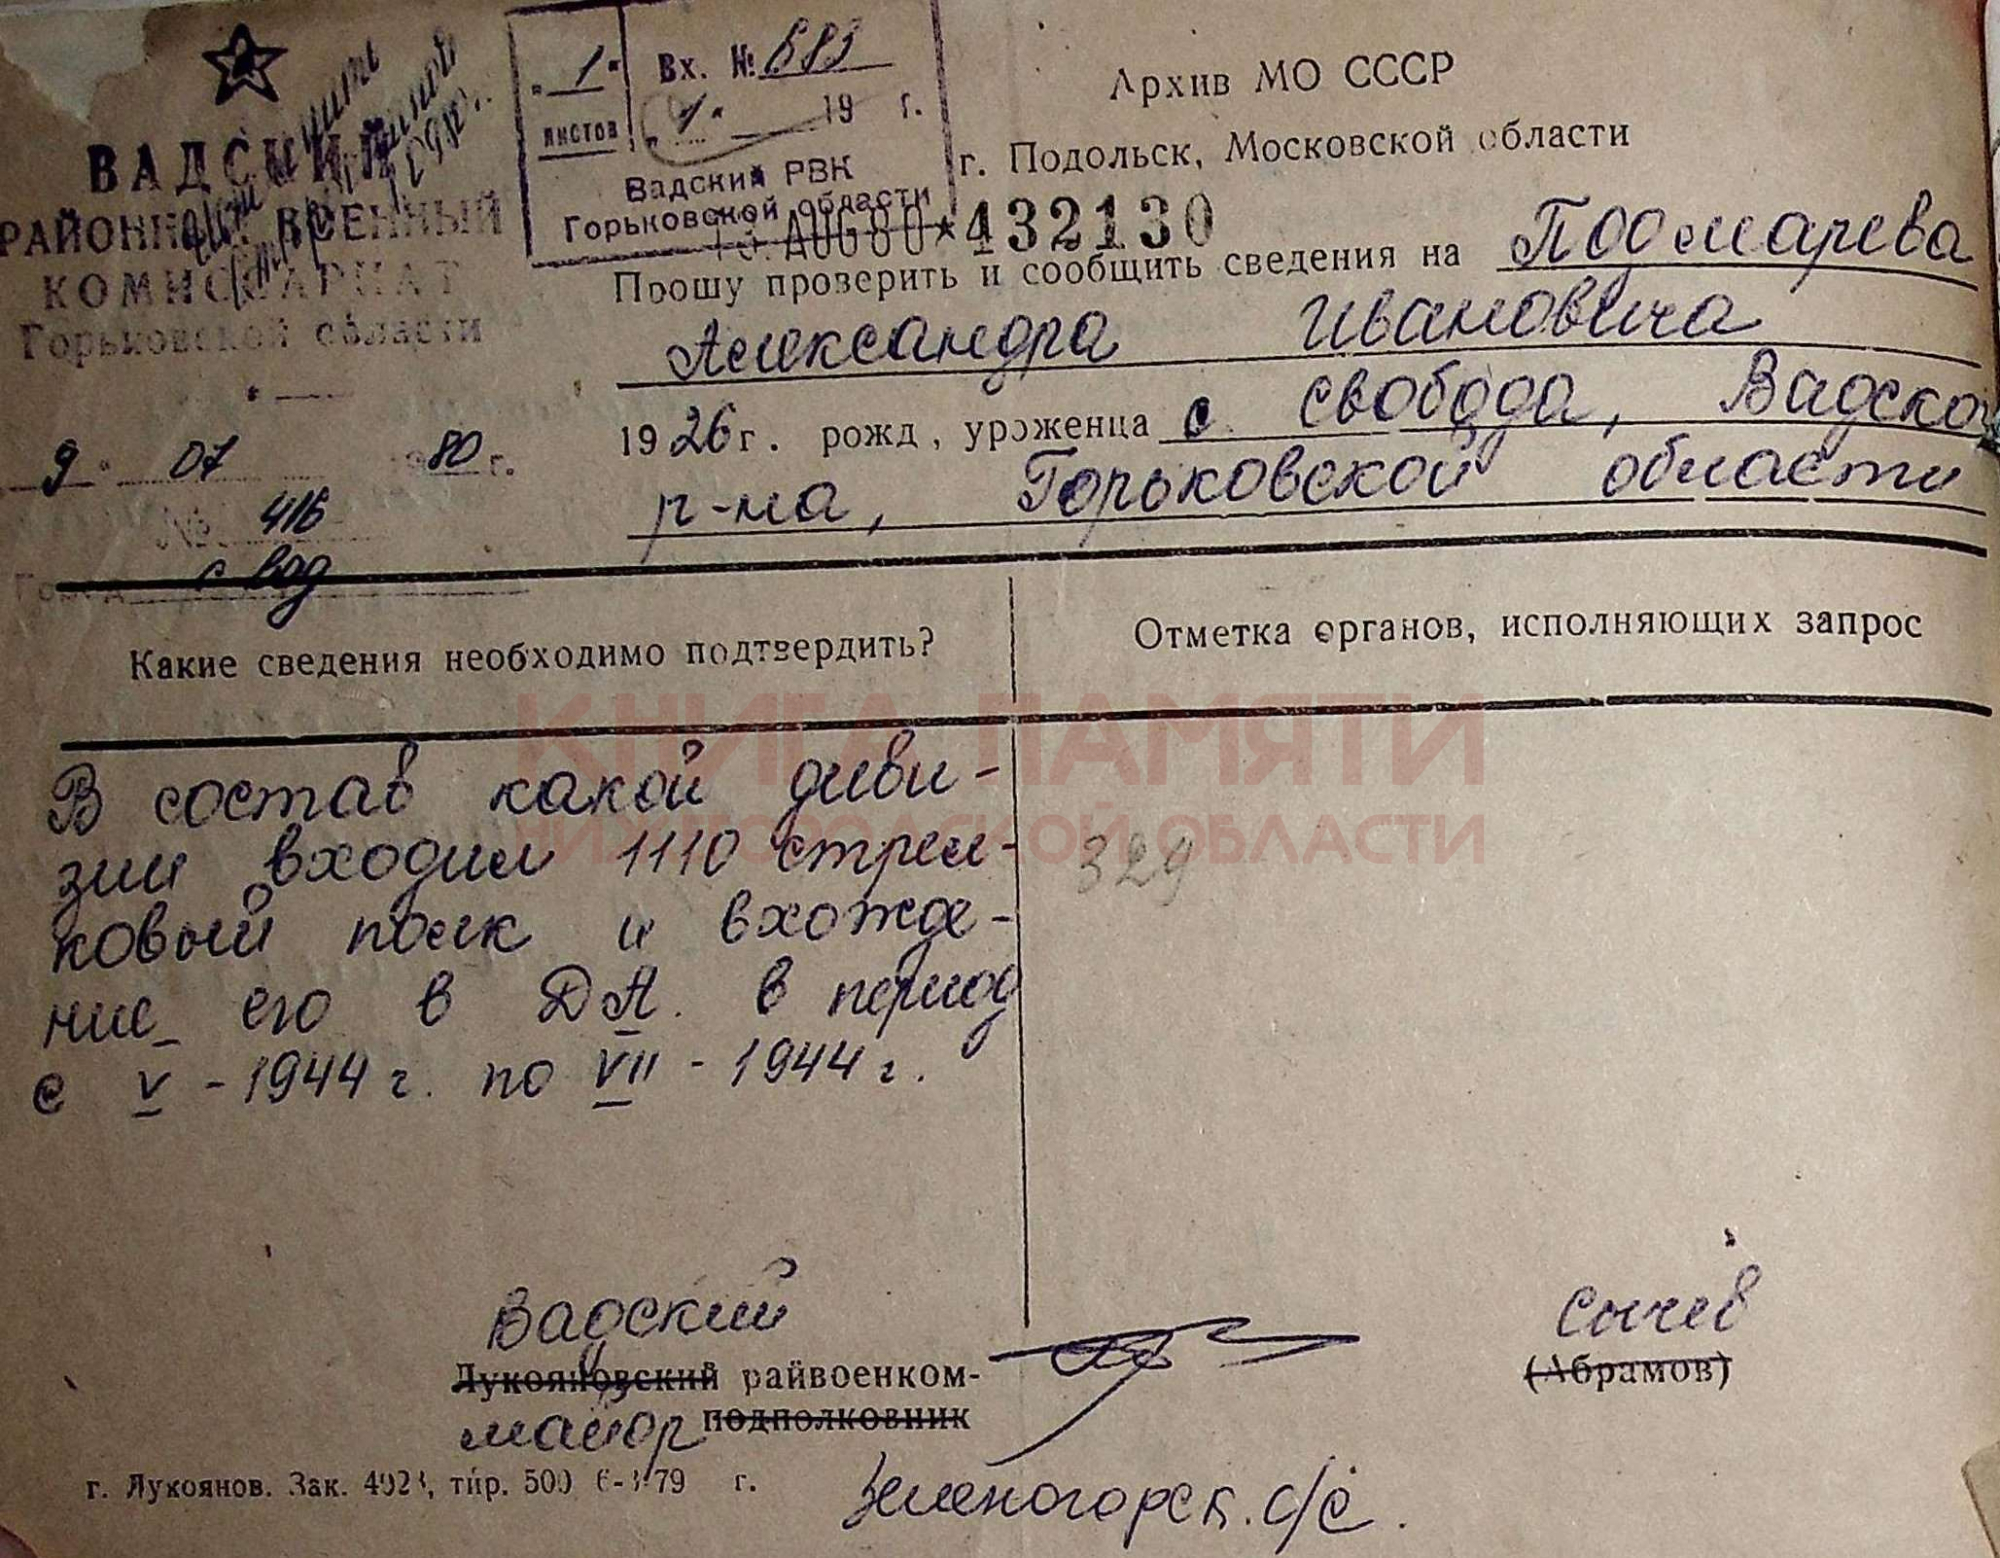 ВАДСКИЙ
РАЙОННЫЙ ВОЕННЫЙ
КОМИССАРИАТ
Горьковской области
9 " 07 1980 г.
№ 416
Город с Вад
" 1 "
листов
Вх. № 583
" 1 " 19 г.
Вадский РВК
Горьковской области
Архив МО СССР
г. Подольск, Московской области
13. AUG 80 * 432130
Прошу проверить и сообщить сведения на Подмарева
Александра Ивановича
1926 г. рожд, уроженца с. свобода, Вадско
р-на, Горьковской области
Какие сведения необходимо подтвердить?
Отметка органов, исполняющих запрос
КНИГА ПАМЯТИ
НИЖЕГОРОДСКОЙ ОБЛАСТИ
В состав какой диви-
зии входил 1110 стрел-
ковый полк и вхожде-
ние его в ДА. в период
с V - 1944 г. по VII - 1944 г.
329
Вадский
Лукояновский райвоенком-
майор подполковник
Сычев
(Абрамов)
г. Лукоянов. Зак. 4923, тир. 500 6-3-79 г.
Зеленогорск. с/с.